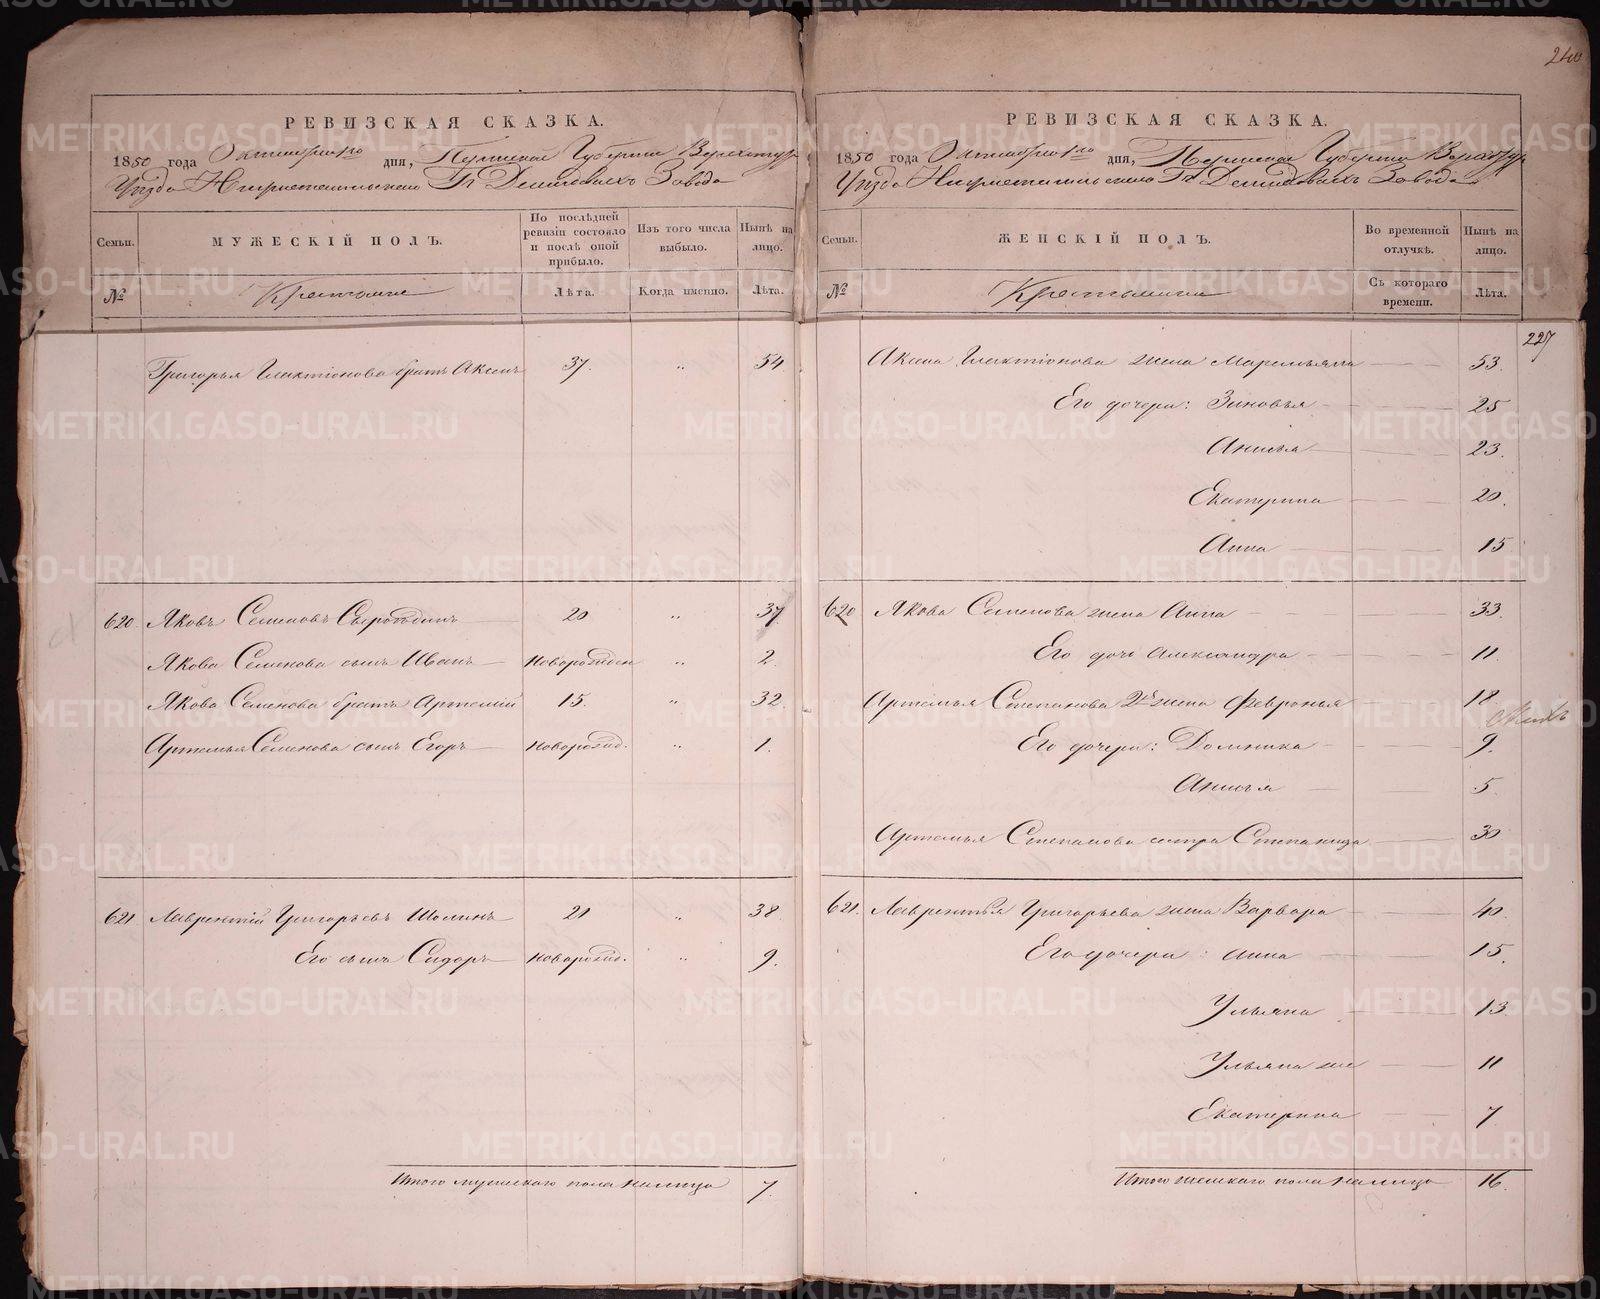 240
РЕВИЗСКАЯ СКАЗКА.
1850 года Октября 1го дня, Пермской Губернии Верхотур
Уезда Нижнетагильскаго Гг. Демидовыхъ Завода
Семьи.
МУЖЕСКІЙ ПОЛЪ.
По послѣдней ревизіи состояло и послѣ оной прибыло.
Изъ того числа выбыло.
Нынѣ на лицо.
№
Крестьяне
Лѣта.
Когда именно.
Лѣта.
Григорья Галактіонова братъ Аксенъ 37. „ 54.
620 Яковъ Семеновъ 20 „ 37
Якова Семенова сынъ Иванъ новорожден „ 2.
Якова Семенова братъ Артемій 15. „ 32.
Артемья Семенова сынъ Егоръ новорожд. „ 1.
621 Лаврентій Григорьевъ Шолинъ 21 „ 38.
Его сынъ Сидоръ новорожд. „ 9.
Итого мужескаго пола налицо 7.
РЕВИЗСКАЯ СКАЗКА.
1850 года Октября 1го дня, Пермской Губернии Верхотур
Уезда Нижнетагильскаго Гг. Демидовыхъ Завода
Семьи.
ЖЕНСКІЙ ПОЛЪ.
Во временной отлучкѣ.
Нынѣ на лицо.
№
Крестьянки
Съ котораго времени.
Лѣта.
227
Аксена Галактіонова жена Маремьяна 53.
Его дочери: Зиновья 25
Анисья 23.
Екатерина 20.
Анна 15
620 Якова Семенова жена Анна 33.
Его дочь Александра 11.
Артемья Степанова 2я жена Февронья 18.
Его дочери: Домника 9.
Анисья 5.
Артемья Степанова сестра Степанида 30
621. Лаврентья Григорьева жена Варвара 40.
Его дочери: Анна 15.
Ульяна 13.
Ульяна же 11
Екатерина 7
Итого женскаго пола налицо 16.
METRIKI.GASO-URAL.RU